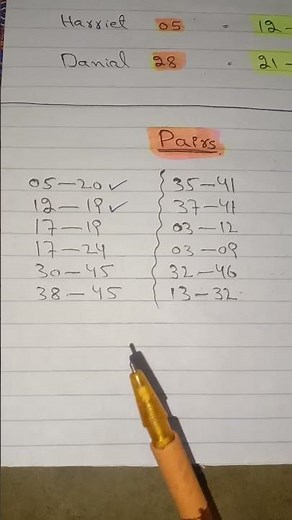 Harriet 05 - 12-
Danial 28 - 21-
Pairs
05-20✓
12-19✓
17-19
17-24
30-45
38-45
35-41
37-41
03-12
03-09
32-46
13-32